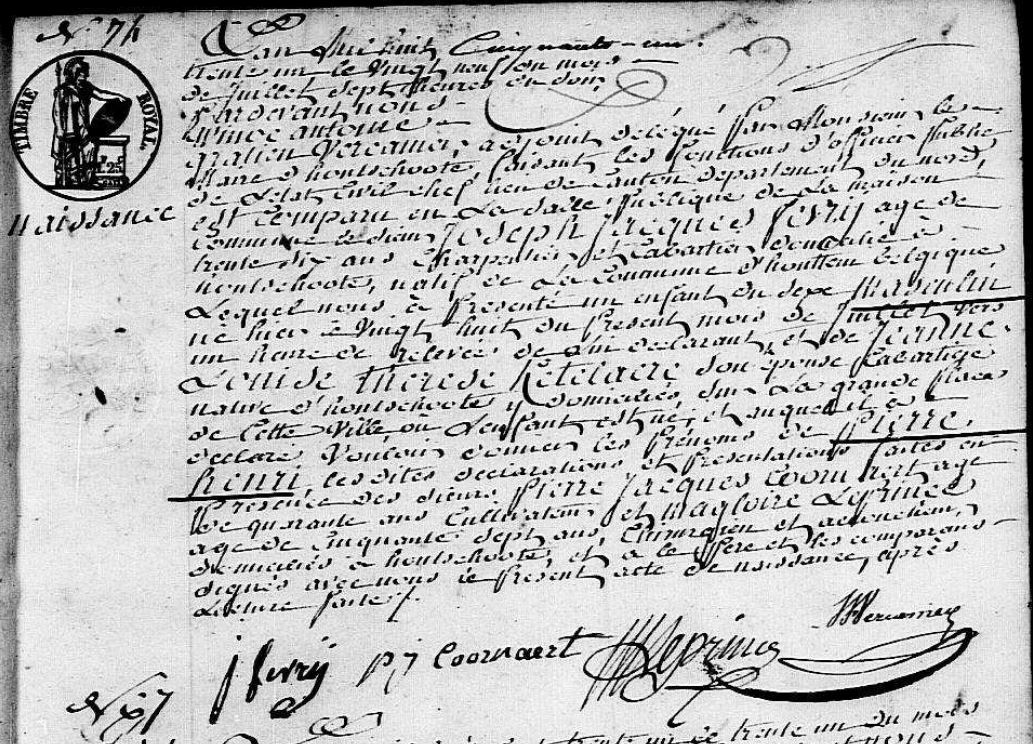 N° 74
L'an Mil huit Cinquante-un.
trente un le Vingt neuf du mois
de Juillet Sept heures du soir,
Pardevant nous
antoine
gratien Vercamer, adjoint délégué Par Monsieur le
Maire d'hontschoote, faisant les fonctions d'officier Public
de L'etat Civil chef lieu de Canton departement du nord,
est comparu en La Salle Publique de La maison
Commune le sieur Joseph Jacques fevrij age de
trente six ans Charpentier et Cabartier domicilié à
hontschoote, natif de La Commune d'houttem belgique
Lequel nous à Presenté un enfant du sexe Masculin
né hier à Vingt huit du Present mois de Juillet vers
un heure de relevée de lui declarant, et de Jeanne
Louise Therese Ketelaere son épouse Cabartiére
native d'hontschoote y domiciliés, sur La grande Place
de Cette Ville, où L'enfant est né, et auquel il a
declaré Vouloir donner les Prénoms de Pierre
henri les dites declarations et Presentations faites en
Presence des sieurs Pierre Jacques Coornaert age
de quarante ans Cultivateur et magloire Leprince
age de Cinquante Sept ans, Chirurgien et accoucheur,
domiciliés à hontschoote, et a le Pere et les comparans
signés avec nous le Present acte de naissance, après
Lecture faite.
TIMBRE ROYAL
25
Naissance
j fevrij PJ Coornaert Leprince Vercamer
trente un du mois